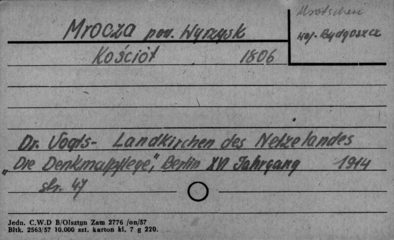 Mrotschen
Mrocza pow. Wyrzysk
woj. Bydgoszcz
Kościół 1806
Dr. Vogts- Landkirchen des Netzelandes
„Die Denkmalpflege", Berlin XVI Jahrgang 1914
str. 47
Jedn. C.W.D B/Olsztyn Zam 2776 /on/57
Bltk. 2563/57 10.000 szt. karton kl. 7 g 220.